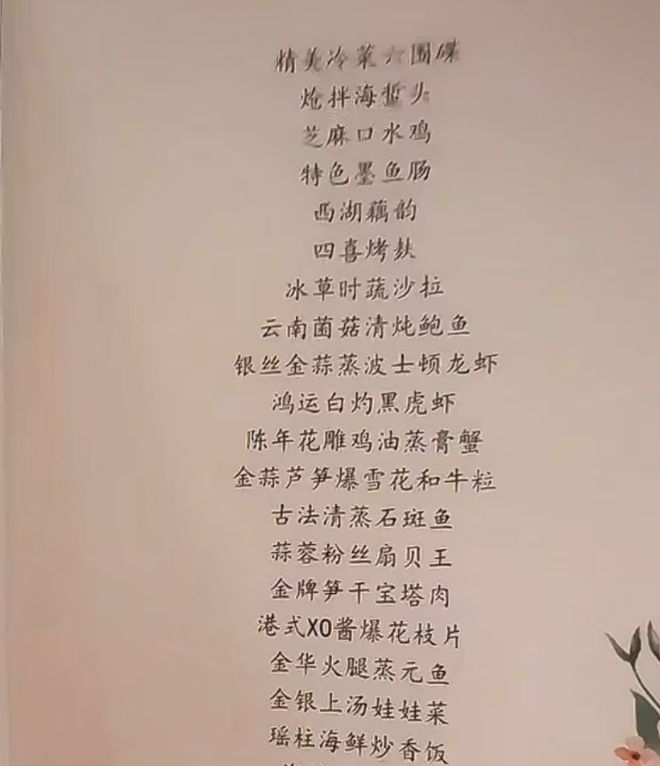 精美冷菜六围碟
炝拌海蜇头
芝麻口水鸡
特色墨鱼肠
西湖藕韵
四喜烤麸
冰草时蔬沙拉
云南菌菇清炖鲍鱼
银丝金蒜蒸波士顿龙虾
鸿运白灼黑虎虾
陈年花雕鸡油蒸膏蟹
金蒜芦笋爆雪花和牛粒
古法清蒸石斑鱼
蒜蓉粉丝扇贝王
金牌笋干宝塔肉
港式XO酱爆花枝片
金华火腿蒸元鱼
金银上汤娃娃菜
瑶柱海鲜炒香饭